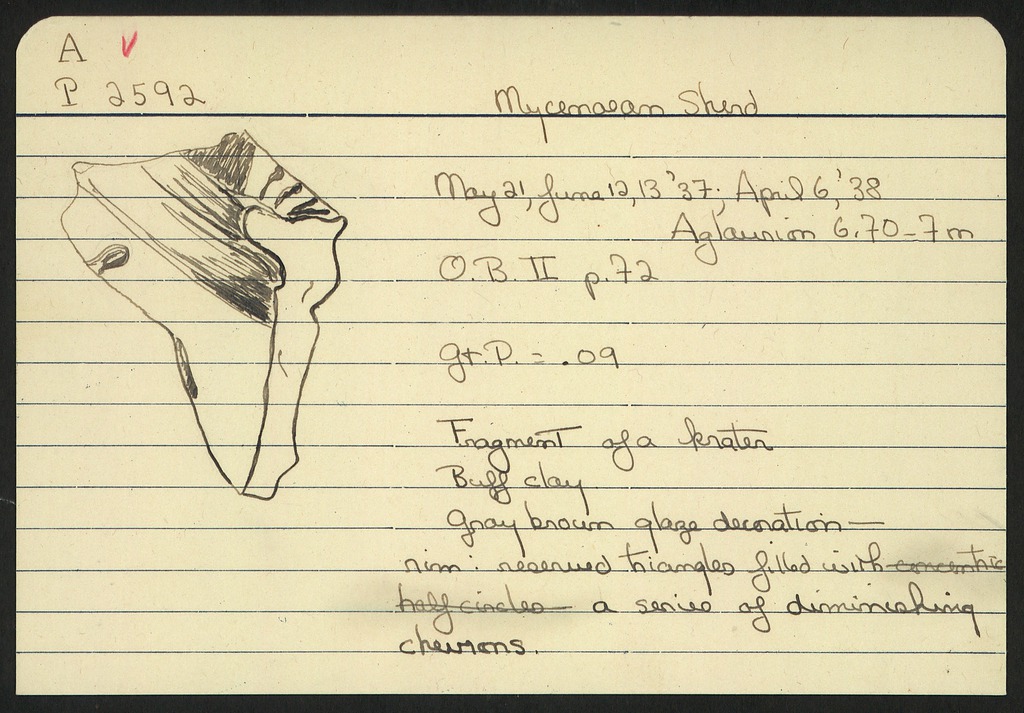 A ✓
P 2592
Mycenaean Sherd
May 21, June 12, 13 '37; April 6, '38
Aglaurion 6.70-7m
O.B. II p.72
gr.P. = .09
Fragment of a krater
Buff clay
Gray brown glaze decoration—
rim: reserved triangles filled with concentric
half circles a series of diminishing
chevrons.